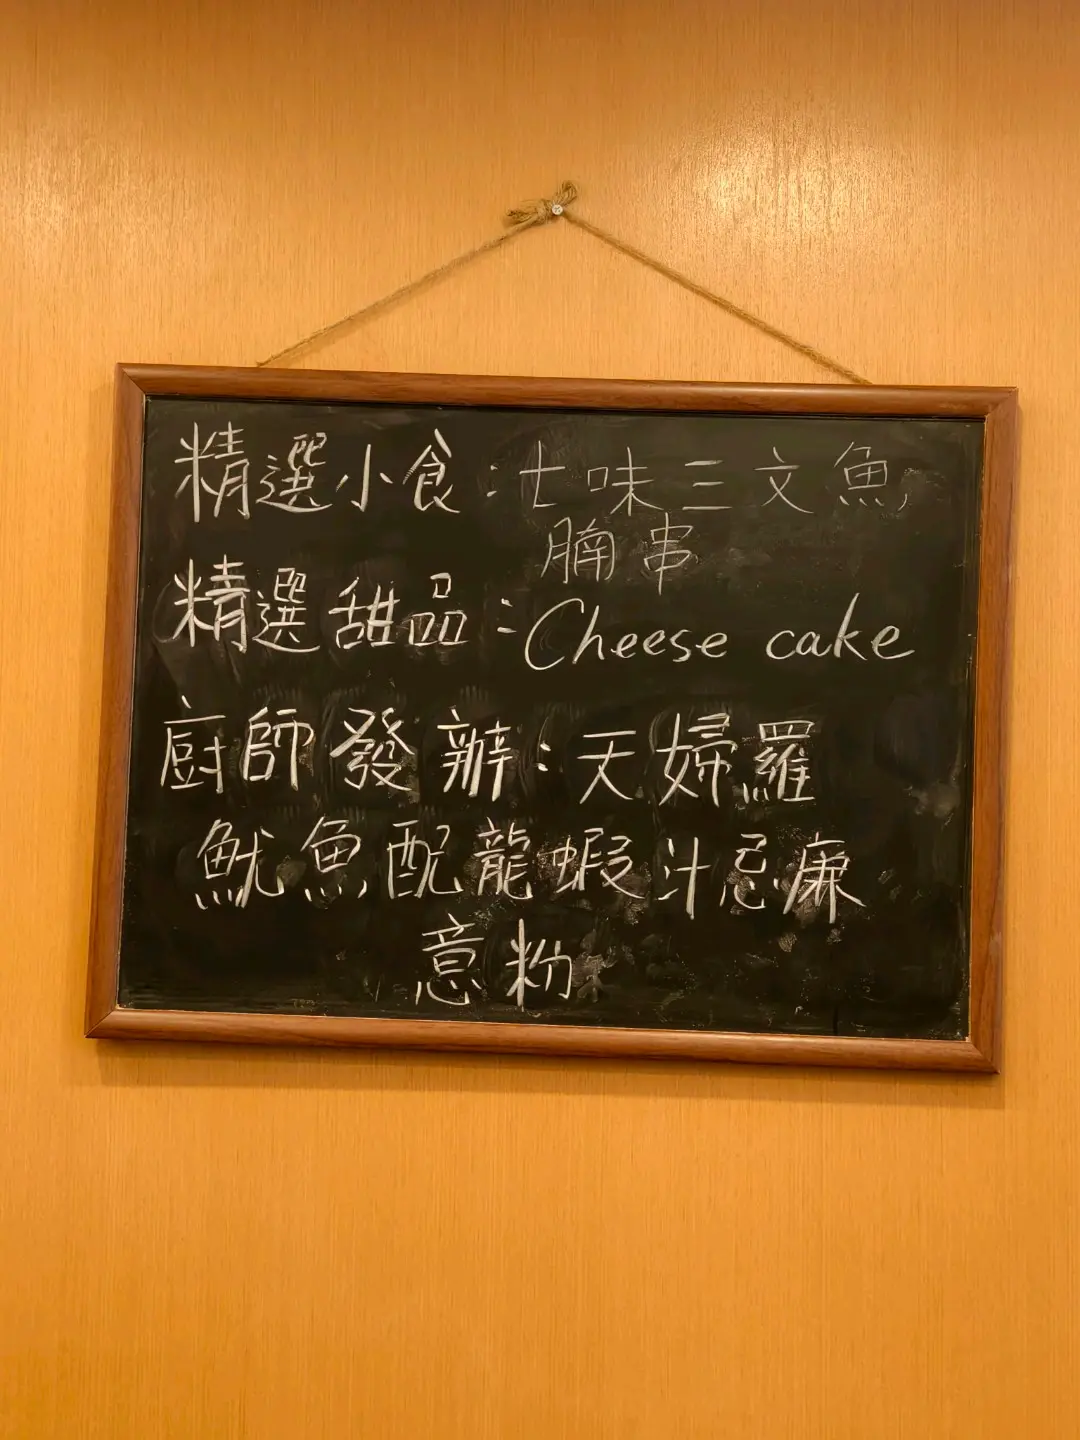 精選小食：七味三文魚
腩串
精選甜品：Cheese cake
廚師發辦：天婦羅
魷魚配龍蝦汁忌廉
意粉